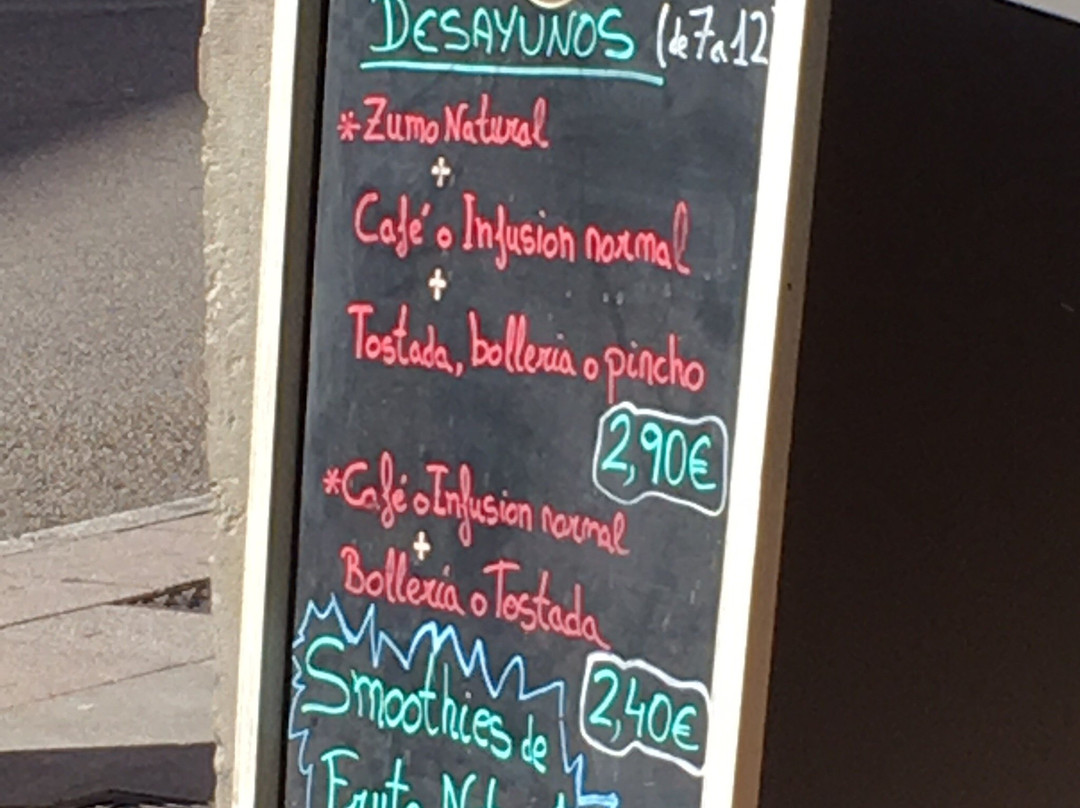 DESAYUNOS (de 7 a 12
*Zumo Natural
+
Café o Infusion normal
+
Tostada, bolleria o pincho
2,90€
*Café o Infusion normal
+
Bollería o Tostada
2,40€
Smoothies de
Fruta